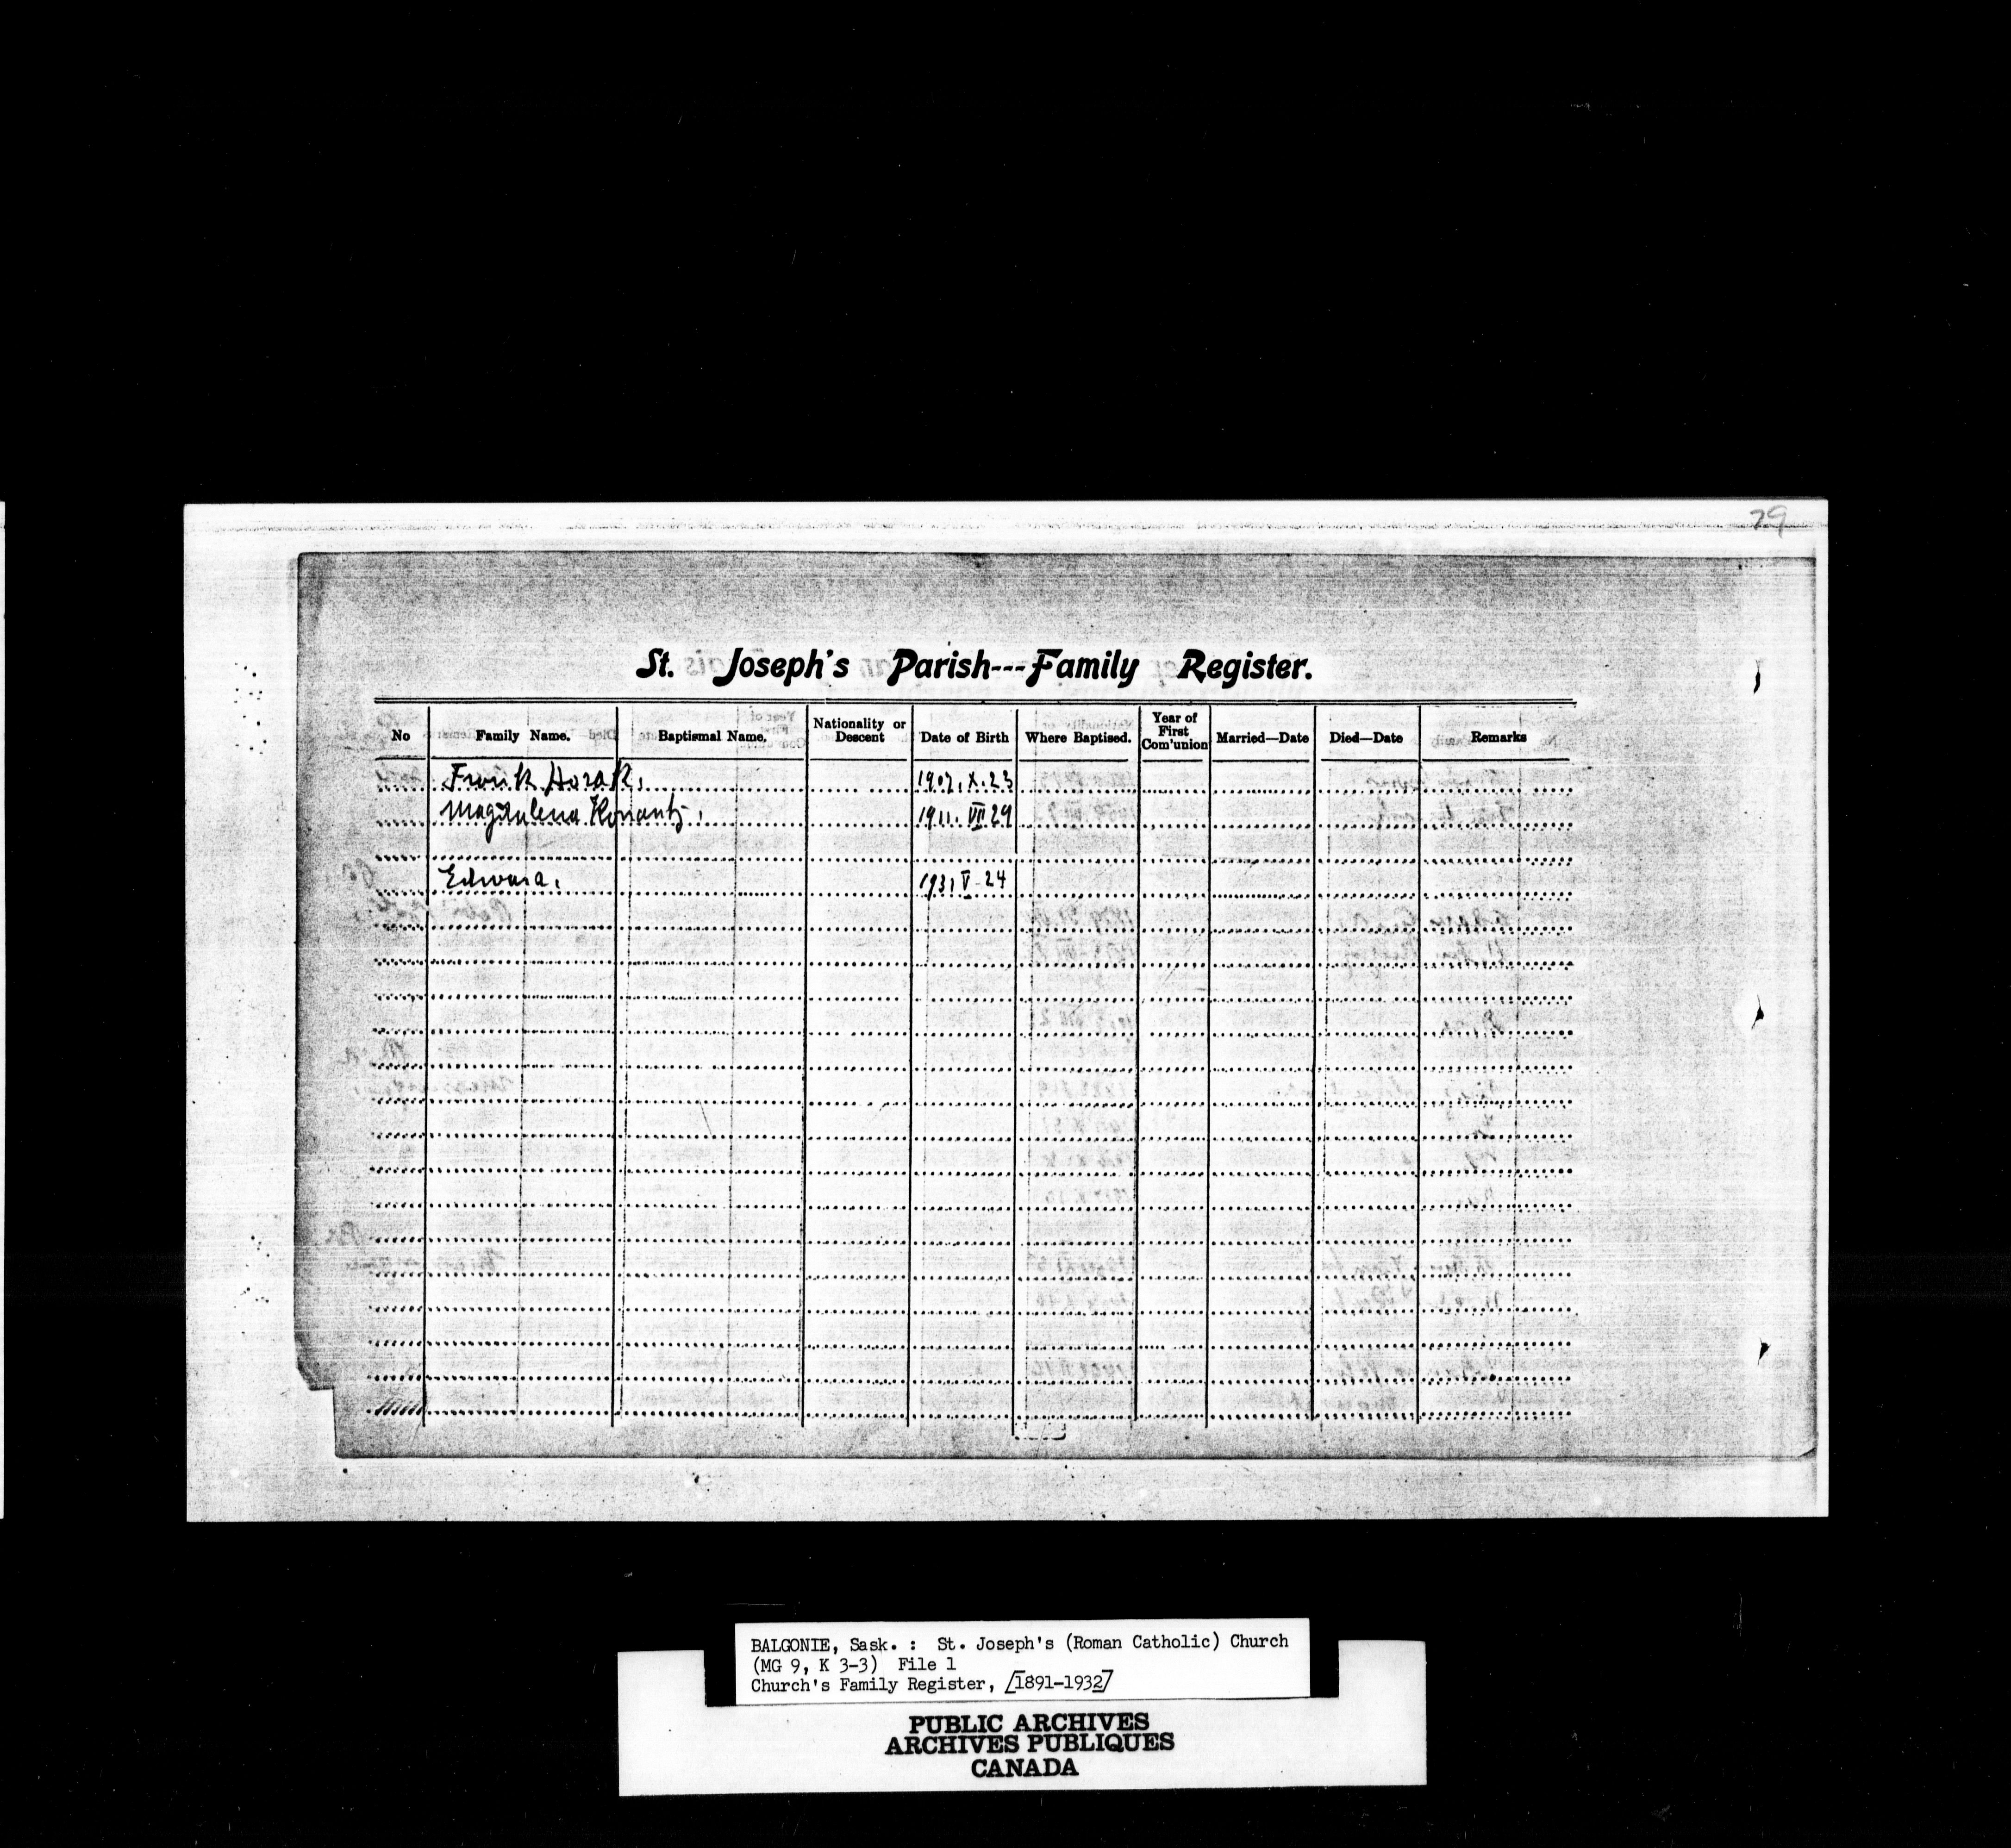 79
St. Joseph's Parish---Family Register.
No Family Name. Baptismal Name. Nationality or Descent Date of Birth Where Baptised. Year of First Com'union Married—Date Died—Date Remarks
Frank Horak. 1907. X. 23
Magdalena 1911. VII 29
Edward. 1931 V 24
BALGONIE, Sask. : St. Joseph's (Roman Catholic) Church
(MG 9, K 3-3) File 1
Church's Family Register, [1891-1932]
PUBLIC ARCHIVES
ARCHIVES PUBLIQUES
CANADA